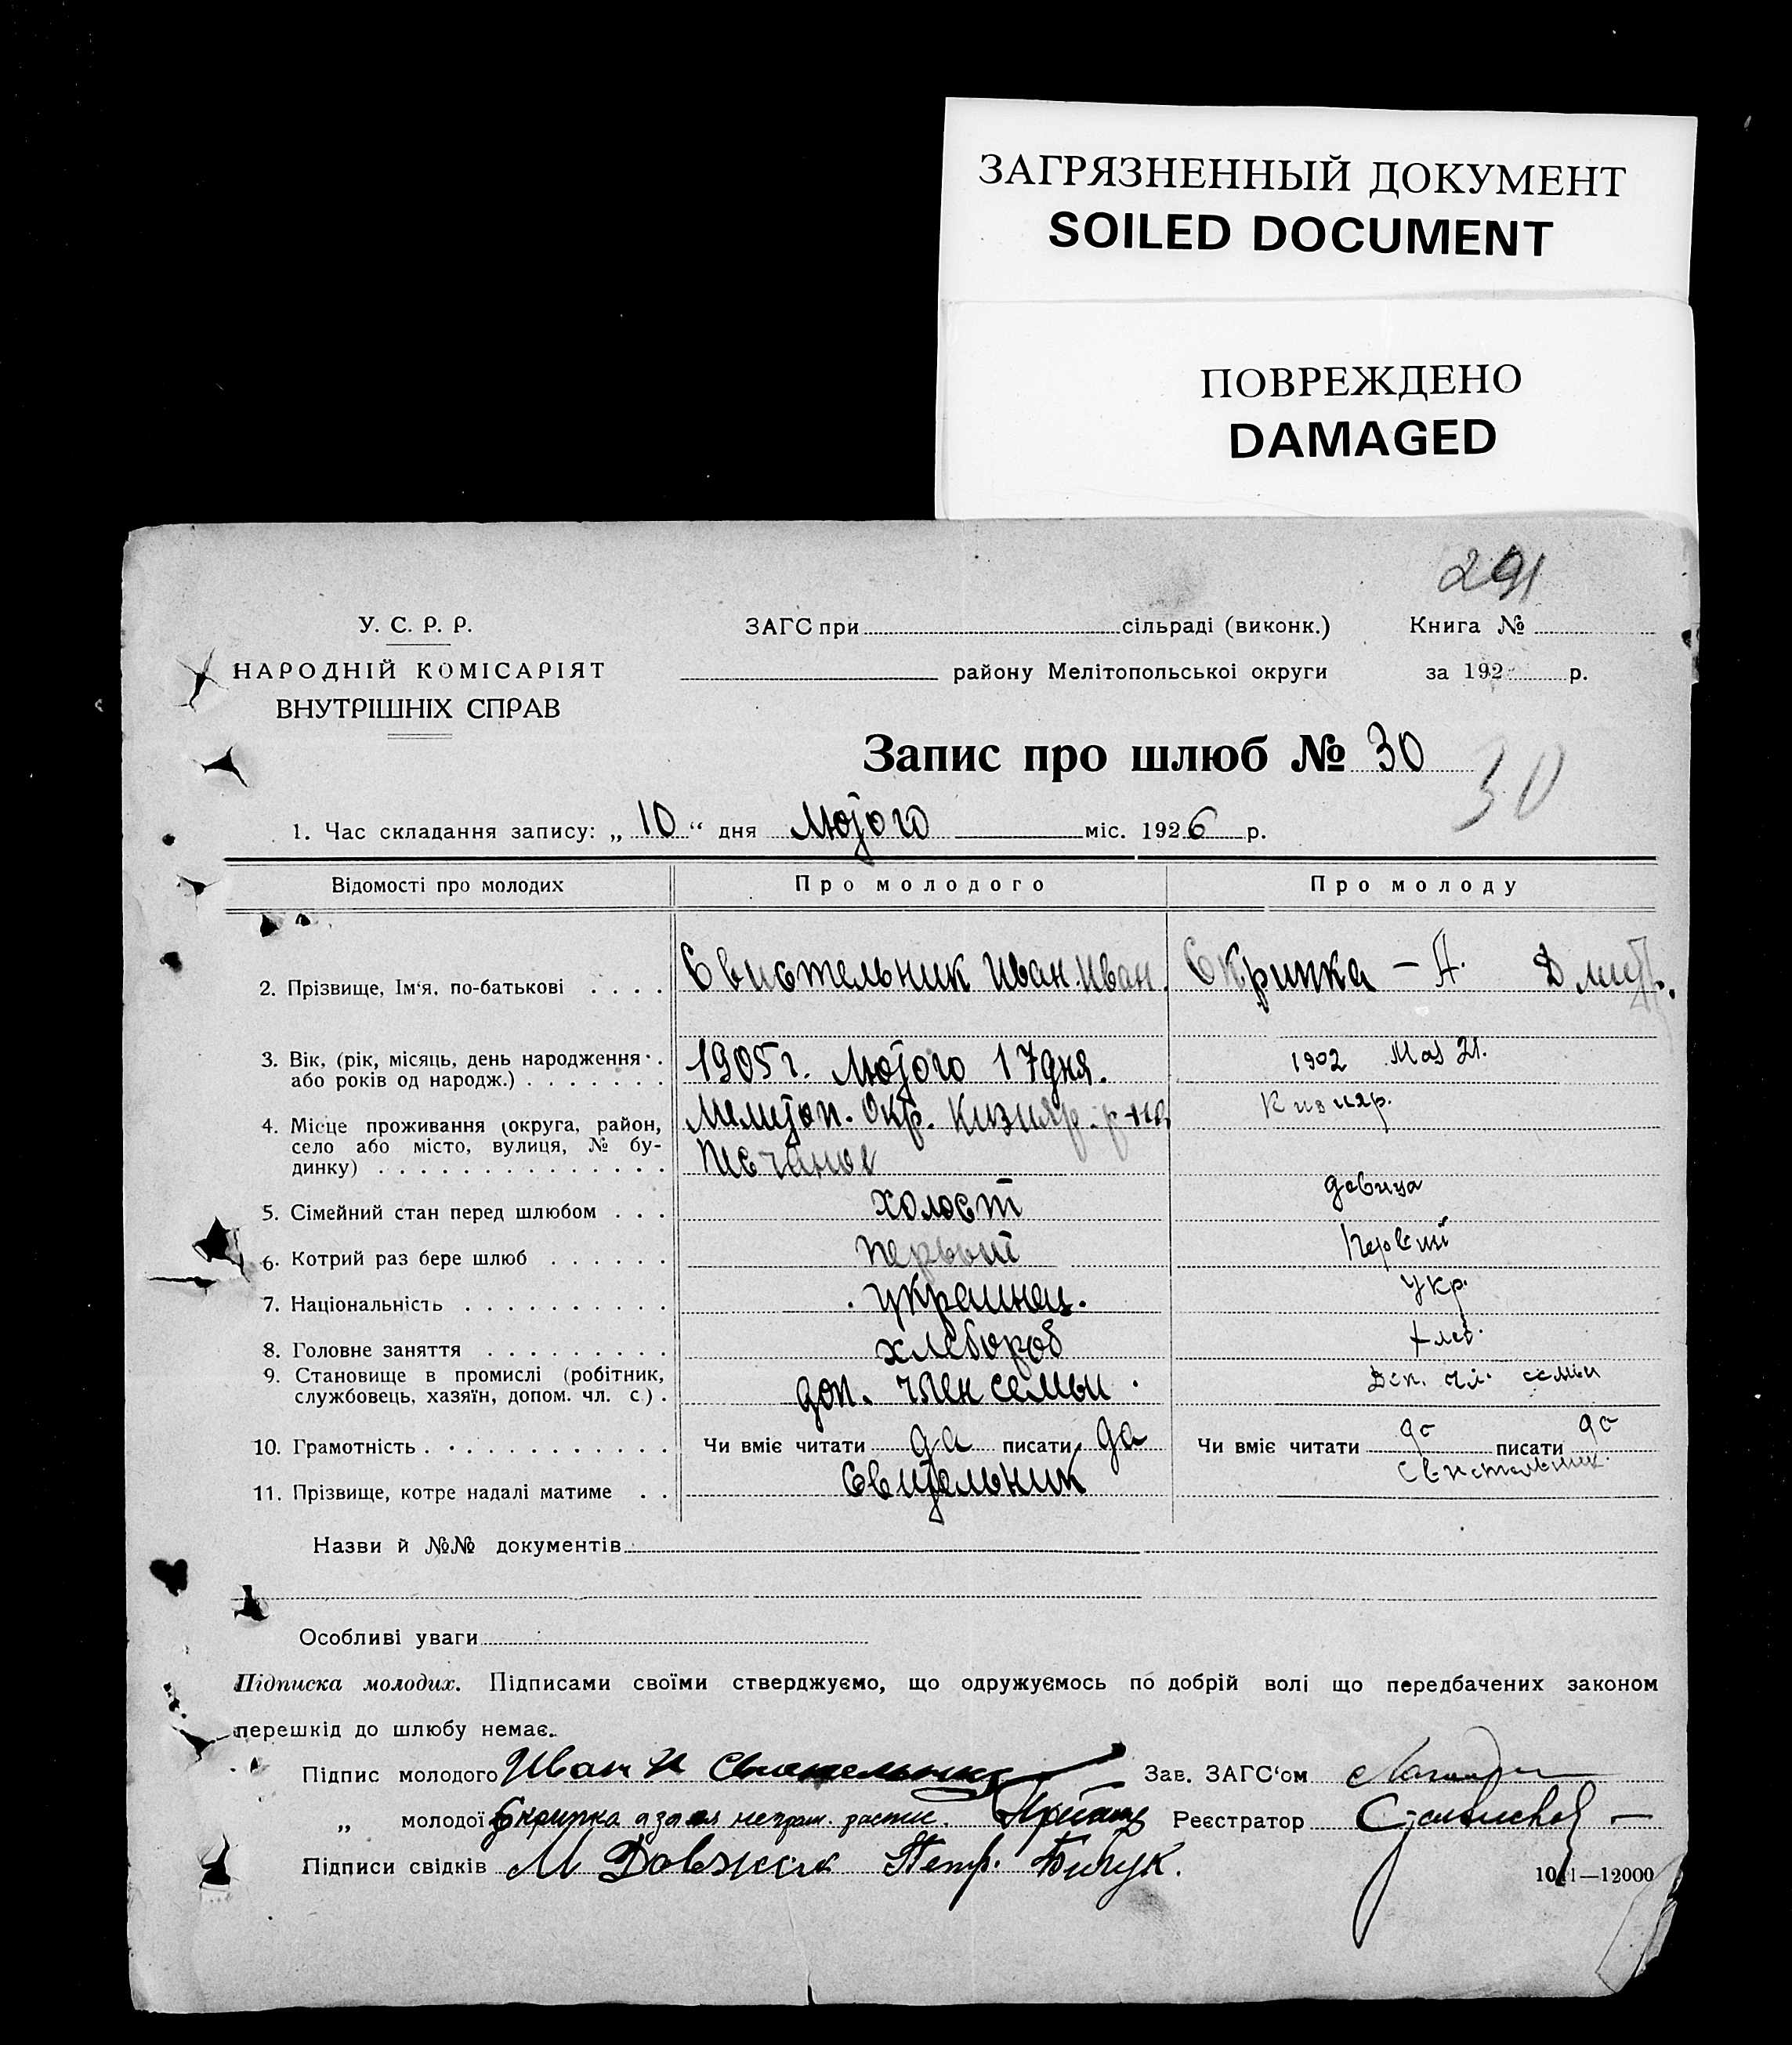 ЗАГРЯЗНЕННЫЙ ДОКУМЕНТ
SOILED DOCUMENT
ПОВРЕЖДЕНО
DAMAGED
291
У. С. Р. Р.
НАРОДНІЙ КОМІСАРІЯТ
ВНУТРІШНІХ СПРАВ
ЗАГС при сільраді (виконк.) Книга №
району Мелітопольської округи за 192 р.
Запис про шлюб № 30
30
1. Час складання запису: „ 10 “ дня Лютого міс. 1926 р.
Відомості про молодих Про молодого Про молоду
2. Прізвище, Ім'я, по-батькові . . . . Свистельник Иван. Иван. Скрипка – А. Дмит.
3. Вік, (рік, місяць, день народження . . 1905 г. Лютого 17 дня. 1902 Мая 21.
або років од народж.) . . . . . . .
4. Місце проживання (округа, район, Мелитоп. Окр. Кизияр. р-на Кизияр.
село або місто, вулиця, № бу-
динку) . . . . . . . . . . . . . . Песчаное
5. Сімейний стан перед шлюбом . . . холост девица
6. Котрий раз бере шлюб . . . . . . первый Первый
7. Національність . . . . . . . . . . украинец. Укр.
8. Головне заняття . . . . . . . . . хлебороб хлеб.
9. Становище в промислі (робітник,
службовець, хазяїн, допом. чл. с.) . доп. член семьи. Доп. чл. семьи
10. Грамотність . . . . . . . . . . . . Чи вміє читати да писати да Чи вміє читати да писати да
11. Прізвище, котре надалі матиме . . Свительник Свистельник.
Назви й №№ документів
Особливі уваги
Підписка молодих. Підписами своїми стверджуємо, що одружуємось по добрій волі що передбачених законом
перешкід до шлюбу немає.
Підпис молодого Иван И Свистельник Зав. ЗАГС'ом
„ молодої Скрипка а за ея неграм. распис. Реєстратор
Підписи свідків М Довжик Петр.
1011—12000